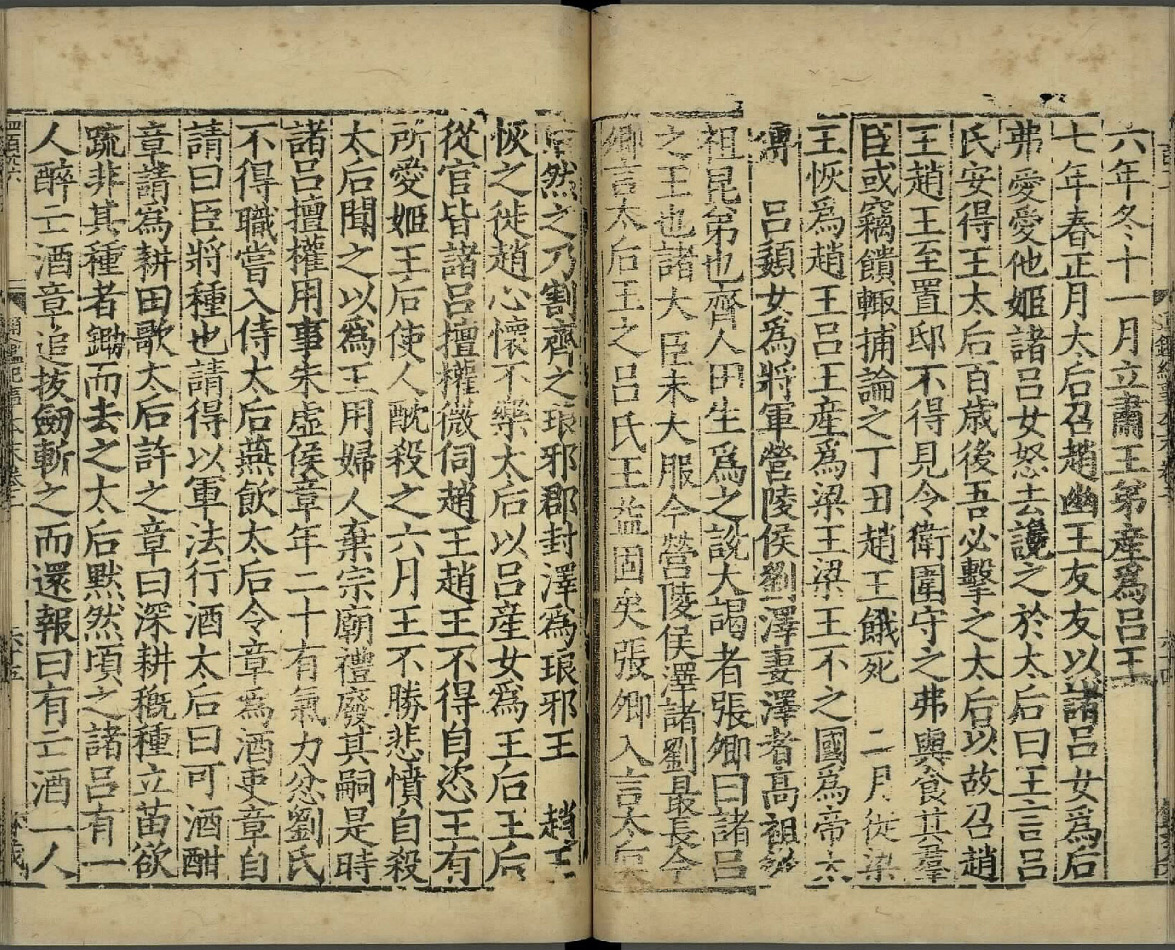 六年冬十一月立肅王弟産爲呂王
七年春正月太后召趙幽王友友以諸呂女爲后
弗愛愛他姬諸呂女怒去讒之於太后曰王言呂
氏安得王太后百歲後吾必擊之太后以故召趙
王趙王至置邸不得見令衛圍守之弗與食其羣
臣或竊饋輙捕論之丁丑趙王餓死 二月徙梁
王恢爲趙王呂王産爲梁王梁王不之國爲帝太
傅 呂嬃女爲將軍營陵侯劉澤妻澤者高祖從
祖昆弟也齊人田生爲之說大謁者張卿曰諸呂
之王也諸大臣未大服今營陵侯澤諸劉最長今
卿言太后王之呂氏王益固矣張卿入言太后
太后然之乃割齊之琅邪郡封澤爲琅邪王 趙王
恢之徙趙心懷不樂太后以呂産女爲王后王后
從官皆諸呂擅權微伺趙王趙王不得自恣王有
所愛姬王后使人酖殺之六月王不勝悲憤自殺
太后聞之以爲王用婦人棄宗廟禮廢其嗣是時
諸呂擅權用事朱虚侯章年二十有氣力忿劉氏
不得職嘗入侍太后燕飲太后令章爲酒吏章自
請曰臣將種也請得以軍法行酒太后曰可酒酣
章請爲耕田歌太后許之章曰深耕穊種立苗欲
疏非其種者鋤而去之太后默然頃之諸呂有一
人醉亡酒章追拔劒斬之而還報曰有亡酒一人